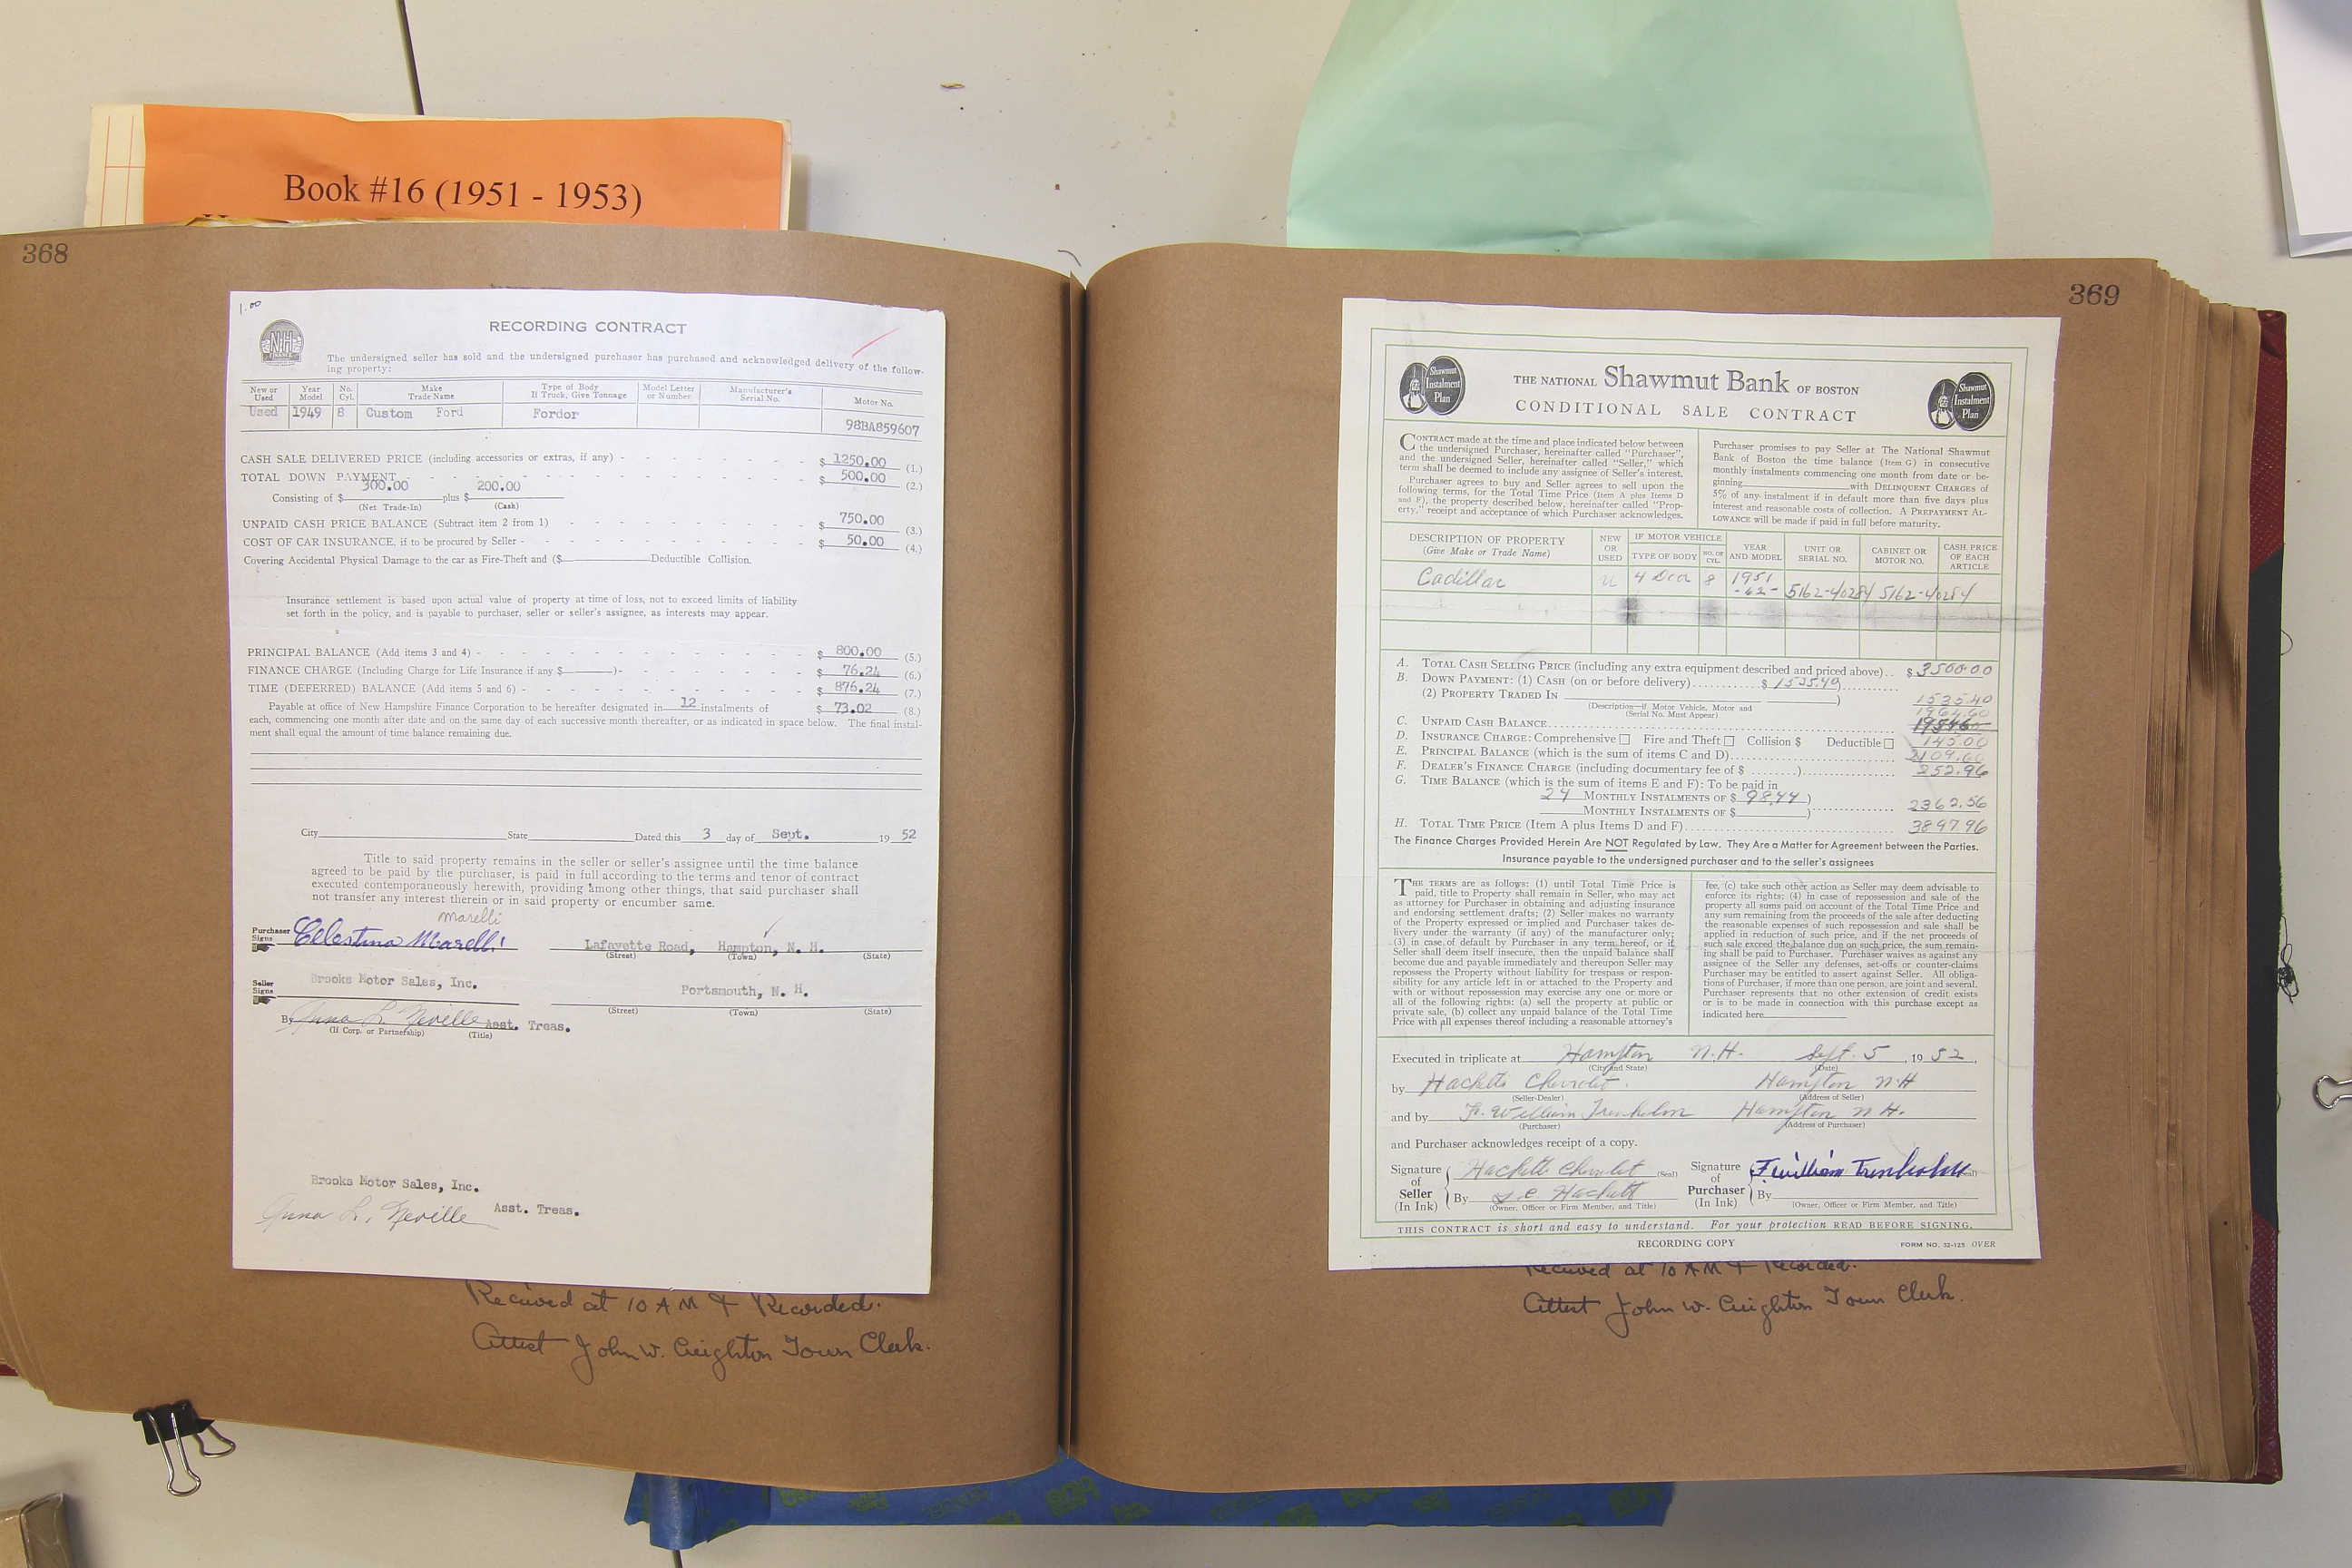 Book #16 (1951 - 1953)
368
1.00
NH
FINANCE
RECORDING CONTRACT
The undersigned seller has sold and the undersigned purchaser has purchased and acknowledged delivery of the follow-
ing property:
New or Used Year Model No. Cyl. Make Trade Name Type of Body If Truck, Give Tonnage Model Letter or Number Manufacturer's Serial No. Motor No.
Used 1949 8 Custom Ford Fordor 98BA859607
CASH SALE DELIVERED PRICE (including accessories or extras, if any) - $ 1250.00 (1.)
TOTAL DOWN PAYMENT - $ 500.00 (2.)
300.00 200.00
Consisting of $ plus $
(Net Trade-In) (Cash)
UNPAID CASH PRICE BALANCE (Subtract item 2 from 1) - $ 750.00 (3.)
COST OF CAR INSURANCE, if to be procured by Seller - $ 50.00 (4.)
Covering Accidental Physical Damage to the car as Fire-Theft and ($ Deductible Collision.
Insurance settlement is based upon actual value of property at time of loss, not to exceed limits of liability
set forth in the policy, and is payable to purchaser, seller or seller's assignee, as interests may appear.
PRINCIPAL BALANCE (Add items 3 and 4) - $ 800.00 (5.)
FINANCE CHARGE (Including Charge for Life Insurance if any $ )- $ 76.24 (6.)
TIME (DEFERRED) BALANCE (Add items 5 and 6) - $ 876.24 (7.)
Payable at office of New Hampshire Finance Corporation to be hereafter designated in 12 instalments of $ 73.02 (8.)
each, commencing one month after date and on the same day of each successive month thereafter, or as indicated in space below. The final instal-
ment shall equal the amount of time balance remaining due.
City State Dated this 3 day of Sept. 19 52
Title to said property remains in the seller or seller's assignee until the time balance
agreed to be paid by the purchaser, is paid in full according to the terms and tenor of contract
executed contemporaneously herewith, providing among other things, that said purchaser shall
not transfer any interest therein or in said property or encumber same.
marelli
Purchaser Signs Celestina Marelli Lafayette Road, Hampton, N. H.
(Street) (Town) (State)
Seller Signs Brooks Motor Sales, Inc. Portsmouth, N. H.
(Street) (Town) (State)
By Anna L. Neville Asst. Treas.
(If Corp. or Partnership) (Title)
Brooks Motor Sales, Inc.
Anna L. Neville Asst. Treas.
Received at 10 AM & Recorded.
Attest John W. Creighton Town Clerk.
369
Shawmut Instalment Plan
THE NATIONAL Shawmut Bank OF BOSTON
CONDITIONAL SALE CONTRACT
Shawmut Instalment Plan
CONTRACT made at the time and place indicated below between
the undersigned Purchaser, hereinafter called "Purchaser",
and the undersigned Seller, hereinafter called "Seller," which
term shall be deemed to include any assignee of Seller's interest.
Purchaser agrees to buy and Seller agrees to sell upon the
following terms, for the Total Time Price (Item A plus Items D
and F), the property described below, hereinafter called "Prop-
erty," receipt and acceptance of which Purchaser acknowledges.
Purchaser promises to pay Seller at The National Shawmut
Bank of Boston the time balance (Item G) in consecutive
monthly instalments commencing one month from date or be-
ginning with DELINQUENT CHARGES of
5% of any instalment if in default more than five days plus
interest and reasonable costs of collection. A PREPAYMENT AL-
LOWANCE will be made if paid in full before maturity.
DESCRIPTION OF PROPERTY (Give Make or Trade Name) NEW OR USED IF MOTOR VEHICLE TYPE OF BODY NO. OF CYL. YEAR AND MODEL UNIT OR SERIAL NO. CABINET OR MOTOR NO. CASH PRICE OF EACH ARTICLE
Cadillac U 4 Door 8 1951 -62- 5162-40284 5162-40284
A. TOTAL CASH SELLING PRICE (including any extra equipment described and priced above).. $ 3500.00
B. DOWN PAYMENT: (1) CASH (on or before delivery).......... $ 1535.40
(2) PROPERTY TRADED IN ) 1535.40
(Description—if Motor Vehicle, Motor and
Serial No. Must Appear)
1964.60
C. UNPAID CASH BALANCE
D. INSURANCE CHARGE: Comprehensive □ Fire and Theft □ Collision $ Deductible □ 145.00
E. PRINCIPAL BALANCE (which is the sum of items C and D) 2109.60
F. DEALER'S FINANCE CHARGE (including documentary fee of $ ........) 252.96
G. TIME BALANCE (which is the sum of items E and F): To be paid in
24 MONTHLY INSTALMENTS OF $ 98.44 ) 2362.56
MONTHLY INSTALMENTS OF $ )
H. TOTAL TIME PRICE (Item A plus Items D and F) 3897.96
The Finance Charges Provided Herein Are NOT Regulated by Law. They Are a Matter for Agreement between the Parties.
Insurance payable to the undersigned purchaser and to the seller's assignees
THE TERMS are as follows: (1) until Total Time Price is
paid, title to Property shall remain in Seller, who may act
as attorney for Purchaser in obtaining and adjusting insurance
and endorsing settlement drafts; (2) Seller makes no warranty
of the Property expressed or implied and Purchaser takes de-
livery under the warranty (if any) of the manufacturer only;
(3) in case of default by Purchaser in any term hereof, or if
Seller shall deem itself insecure, then the unpaid balance shall
become due and payable immediately and thereupon Seller may
repossess the Property without liability for trespass or respon-
sibility for any article left in or attached to the Property and
with or without repossession may exercise any one or more or
all of the following rights: (a) sell the property at public or
private sale, (b) collect any unpaid balance of the Total Time
Price with all expenses thereof including a reasonable attorney's
fee, (c) take such other action as Seller may deem advisable to
enforce its rights; (4) in case of repossession and sale of the
property all sums paid on account of the Total Time Price and
any sum remaining from the proceeds of the sale after deducting
the reasonable expenses of such repossession and sale shall be
applied in reduction of such price, and if the net proceeds of
such sale exceed the balance due on such price, the sum remain-
ing shall be paid to Purchaser. Purchaser waives as against any
assignee of the Seller any defenses, set-offs or counter-claims
Purchaser may be entitled to assert against Seller. All obliga-
tions of Purchaser, if more than one person, are joint and several.
Purchaser represents that no other extension of credit exists
or is to be made in connection with this purchase except as
indicated here
Executed in triplicate at Hampton N.H. Sept. 5, 19 52.
(City and State) (Date)
by Hacketts Chevrolet. Hampton NH
(Seller-Dealer) (Address of Seller)
and by F. William Trenholm Hampton N H.
(Purchaser) (Address of Purchaser)
and Purchaser acknowledges receipt of a copy.
Signature of Seller (In Ink) Hacketts Chevrolet (Seal) Signature of Purchaser (In Ink) F. William Trenholm (Seal)
By Hackett By
(Owner, Officer or Firm Member, and Title) (Owner, Officer or Firm Member, and Title)
THIS CONTRACT is short and easy to understand. For your protection READ BEFORE SIGNING.
RECORDING COPY FORM NO. 32-125 OVER
Received at 10 AM & Recorded.
Attest John W. Creighton Town Clerk.